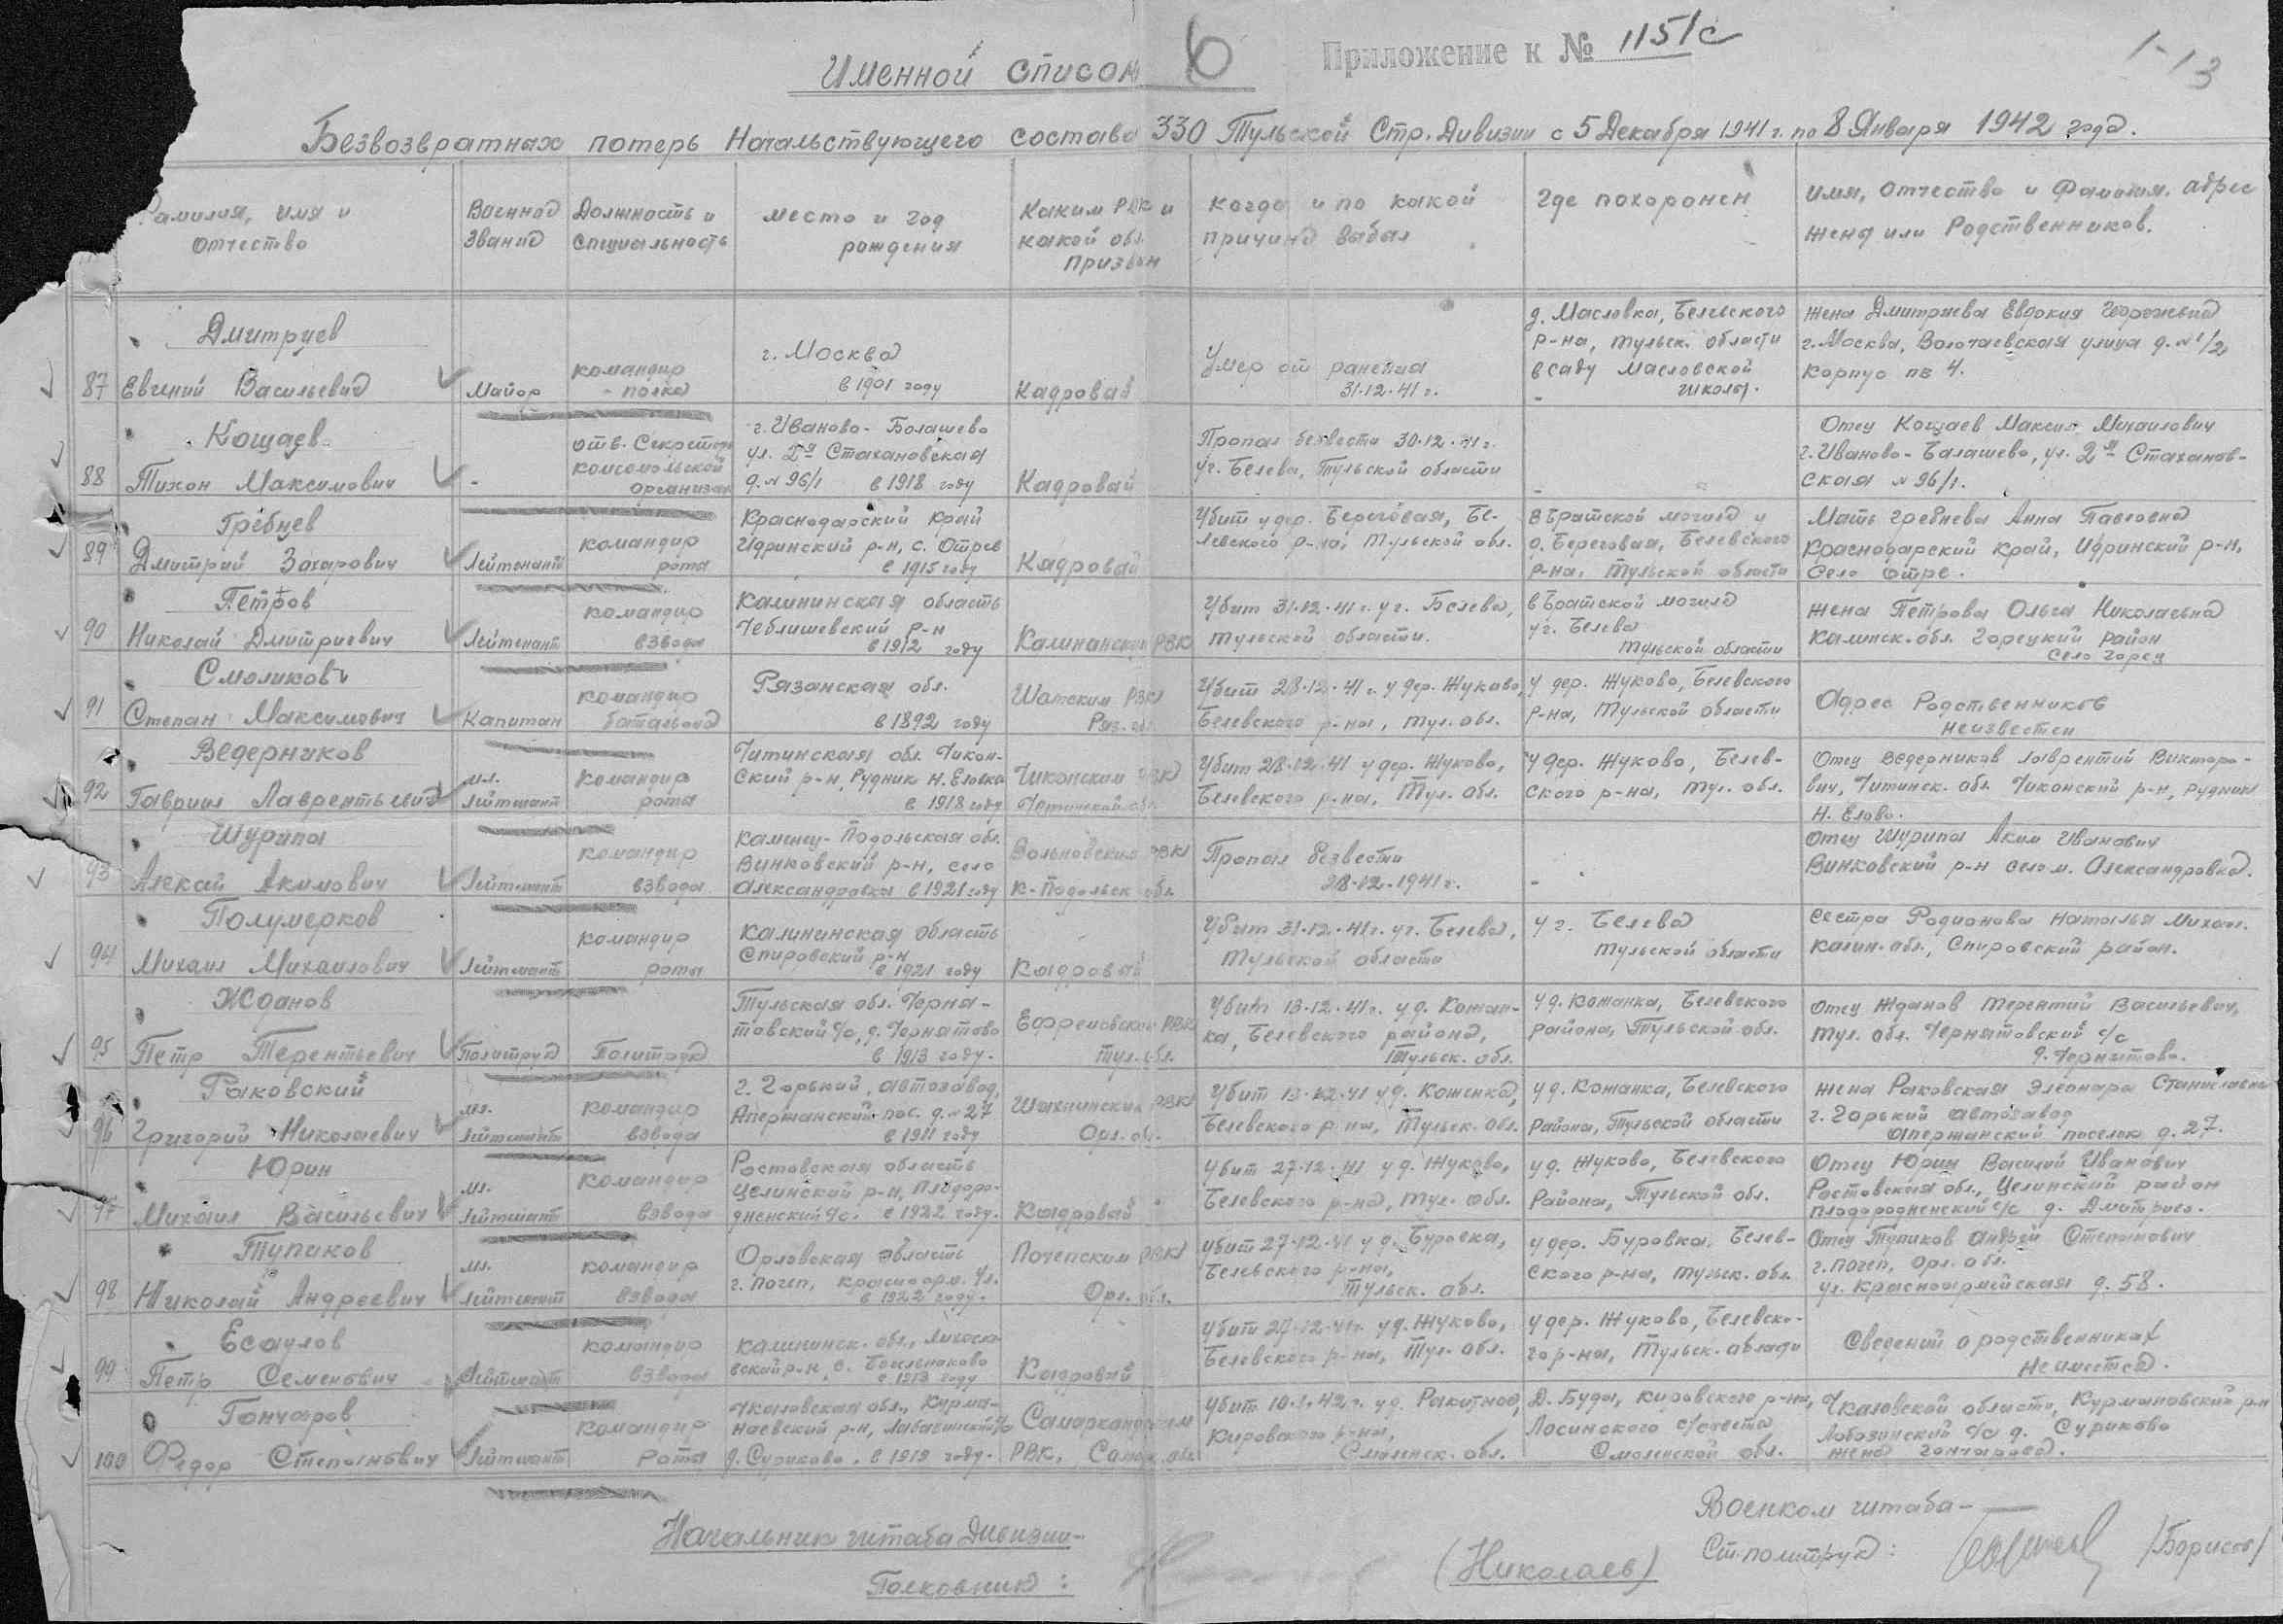 Именной список
6
Приложение к № 1151/с
1-13
Безвозвратных потерь Начальствующего состава 330 Тульской Стр. Дивизии с 5 Декабря 1941 г. по 8 Января 1942 года.
Фамилия, имя и отчество
Военное звание
Должность и специальность
место и год рождения
Каким РВК и какой обл. призван
когда и по какой причине выбыл
где похоронен
имя, отчество и фамилия, адрес жены или Родственников.
87 Дмитриев Евгений Васильевич
Майор
командир полка
г. Москва в 1901 году
Кадровый
Умер от ранения 31.12.41 г.
д. Масловка, Белевского р-на, Тульск. области в саду Масловской школы.
жена Дмитриева Евдокия Георгиевна г. Москва, Волочаевская улица д. № 1/2 корпус № 4.
88 Кощаев Тихон Максимович
-
отв. Секретарь комсомольской организац
г. Иваново-Балашево ул. 2я Стахановская д. № 96/1 в 1918 году
Кадровый
Пропал безвести 30.12.41 г. у г. Белева, Тульской области
-
Отец Кощаев Максим Михаилович г. Иваново-Балашево, ул. 2я Стахановская № 96/1.
89 Гребнев Дмитрий Захарович
Лейтенант
командир роты
Краснодарский край Идринский р-н, с. Отрев в 1915 году
Кадровый
Убит у дер. Береговая, Белевского р-на, Тульской обл.
В Братской могиле у д. Береговая, Белевского р-на, Тульской области
Мать Гребнева Анна Павловна Краснодарский край, Идринский р-н, село Отре.
90 Петров Николай Дмитриевич
Лейтенант
командир взвода
Калининская область Теблишевский р-н в 1912 году
Калининским РВК
Убит 31.12.41 г. у г. Белева, Тульской области.
в Братской могиле у г. Белева Тульской области
жена Петрова Ольга Николаевна Калинск. обл. Горецкий район село Горец
91 Смоликов Степан Максимович
Капитан
командир батальона
Рязанская обл. в 1892 году
Шатским РВК Ряз. обл.
Убит 28.12.41 г. у дер. Жуково, Белевского р-на, Тул. обл.
у дер. Жуково, Белевского р-на, Тульской области
Адрес Родственников неизвестен
92 Ведерников Гавриил Лаврентьевич
мл. Лейтенант
командир роты
Читинская обл. Чиконский р-н, Рудник Н. Еловка в 1918 году
Чиконским РВК Читинской обл.
Убит 28.12.41 у дер. Жуково, Белевского р-на, Тул. обл.
У дер. Жуково, Белевского р-на, Тул. обл.
Отец Ведерников Лаврентий Викторович, Читинск. обл. Чиконский р-н, рудник Н. Елово.
93 Шурипа Алексей Акимович
Лейтенант
командир взвода
Каменец-Подольская обл. Винковский р-н, село Александровка в 1921 году
РВК К-Подольск обл.
Пропал безвести 28.12.1941 г.
-
Отец Шурипа Аким Иванович Винковский р-н село м. Александровка.
94 Полумерков Михаил Михаилович
Лейтенант
командир роты
Калининская область Спировский р-н в 1921 году
Кадровый
Убит 31.12.41 г. у г. Белева, Тульской области
у г. Белева Тульской области
сестра Родионова Наталья Михаил. Калин. обл., Спировский район.
95 Жданов Петр Терентьевич
Политрук
Политрук
Тульская обл. Чернятовский с/с, д. Чернятово в 1913 году.
Ефремовским РВК Тул. обл.
Убит 13.12.41 г. у д. Кожанка, Белевского района, Тульск. обл.
у д. Кожанка, Белевского района, Тульской обл.
Отец Жданов Терентий Васильевич, Тул. обл. Чернятовский с/с д. Чернятово.
96 Раковский Григорий Николаевич
мл. Лейтенант
командир взвода
г. Горький, автозавод, Апержанский пос. д. № 27 в 1911 году
РВК Орл. обл.
Убит 13.12.41 у д. Коженка, Белевского р-на, Тульск. обл.
у д. Кожанка, Белевского Района, Тульской области
жена Раковская Элеонара Станиславна г. Горький автозавод Апержанский поселок д. 27.
97 Юрин Михаил Васильевич
мл. Лейтенант
командир взвода
Ростовская область Целинский р-н, Плодородненский с/с. в 1922 году.
Кадровый
Убит 27.12.41 у д. Жуково, Белевского р-на, Тул. обл.
у д. Жуково, Белевского Района, Тульской обл.
Отец Юрин Василий Иванович Ростовская обл., Целинский район Плодородненский с/с д. Дмитриев.
98 Тупиков Николай Андреевич
мл. Лейтенант
командир взвода
Орловская область г. Почеп, Красноарм. ул. в 1922 году.
Почепским РВК Орл. обл.
Убит 27.12.41 у д. Буровка, Белевского р-на, Тульск. обл.
у дер. Буровка, Белевского р-на, Тульск. обл.
Отец Тупиков Андрей Степанович г. Почеп, Орл. обл. ул. Красноармейская д. 58.
99 Есаулов Петр Семенович
Лейтенант
командир взвода
Калининск. обл., р-н, с. в 1913 году
Кадровый
Убит 27.12.41 г. у д. Жуково, Белевского р-на, Тул. обл.
у дер. Жуково, Белевского р-на, Тульск. области
Сведений о родственниках не имеется.
100 Гончаров Федор Степанович
Лейтенант
командир роты
Чкаловская обл., Курманаевский р-н, с/с д. Суриково. в 1919 году.
Самаркандским РВК, Самар. обл.
Убит 10.1.42 г. у д. Ракитное, Кировского р-на, Смоленск. обл.
Д. Буды, Кировского р-на, Лосинского с/совета Смоленской обл.
Чкаловской области, Курмановский р-н Лобозинский с/с д. Суриково жена Гончарова.
Начальник штаба Дивизии-
Полковник:
(Николаев)
Военком штаба-
Ст. политрук:
/Борисов/